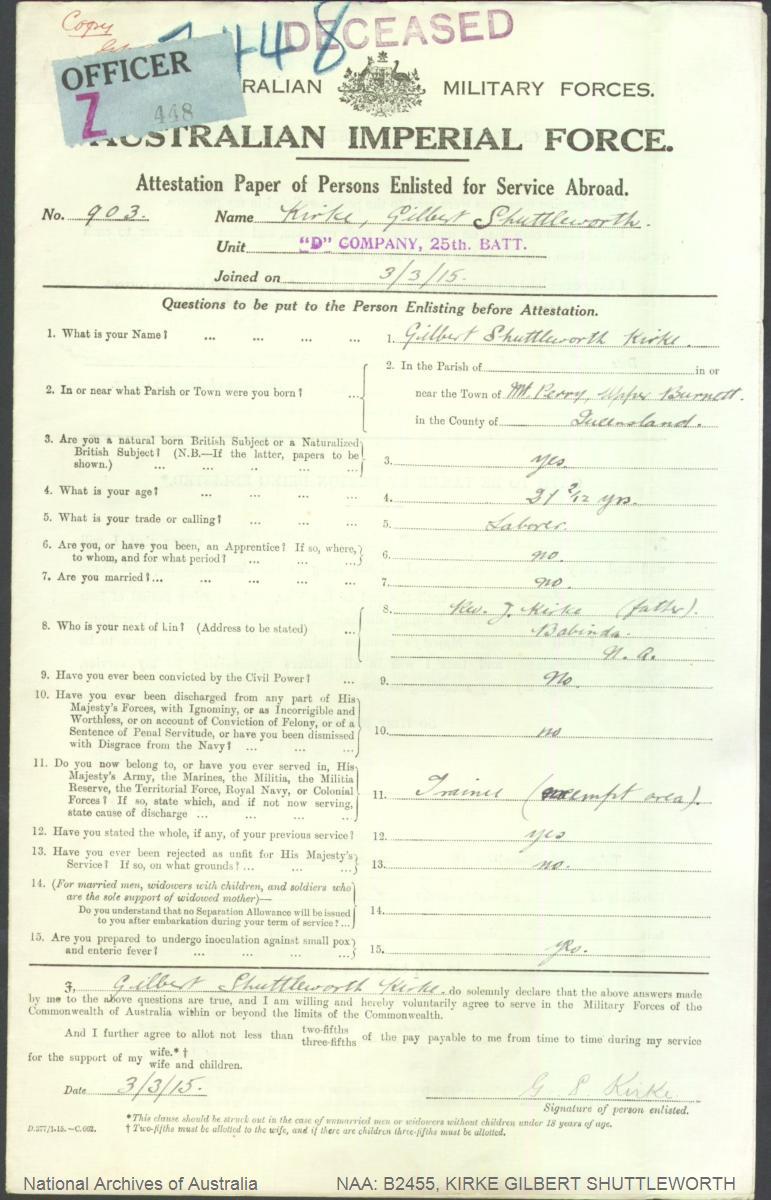 Copy
448
DECEASED
OFFICER
Z 448
RALIAN MILITARY FORCES.
AUSTRALIAN IMPERIAL FORCE.
Attestation Paper of Persons Enlisted for Service Abroad.
No. 903. Name Kirke, Gilbert Shuttleworth.
Unit "D" COMPANY, 25th. BATT.
Joined on 3/3/15.
Questions to be put to the Person Enlisting before Attestation.
1. What is your Name? ... ... ... ... 1. Gilbert Shuttleworth Kirke.
2. In or near what Parish or Town were you born? ... 2. In the Parish of in or
near the Town of Mt. Perry, Upper Burnett.
in the County of Queensland.
3. Are you a natural born British Subject or a Naturalized
British Subject? (N.B.—If the latter, papers to be
shown.) ... ... ... ... ... 3. yes
4. What is your age? ... ... ... ... 4. 21 2/12 yrs.
5. What is your trade or calling? ... ... ... 5. Laborer.
6. Are you, or have you been, an Apprentice? If so, where,
to whom, and for what period? ... ... ... 6. no.
7. Are you married?... ... ... ... ... 7. no.
8. Who is your next of kin? (Address to be stated) ... 8. Rev. J. Kirke (father).
Babinda.
N. Q.
9. Have you ever been convicted by the Civil Power? ... 9. No.
10. Have you ever been discharged from any part of His
Majesty's Forces, with Ignominy, or as Incorrigible and
Worthless, or on account of Conviction of Felony, or of a
Sentence of Penal Servitude, or have you been dismissed
with Disgrace from the Navy? ... ... ... 10. no
11. Do you now belong to, or have you ever served in, His
Majesty's Army, the Marines, the Militia, the Militia
Reserve, the Territorial Force, Royal Navy, or Colonial
Forces? If so, state which, and if not now serving,
state cause of discharge ... ... ... ... 11. Trainee (exempt area).
12. Have you stated the whole, if any, of your previous service? 12. yes
13. Have you ever been rejected as unfit for His Majesty's
Service? If so, on what grounds? ... ... ... 13. no.
14. (For married men, widowers with children, and soldiers who
are the sole support of widowed mother)—
Do you understand that no Separation Allowance will be issued
to you after embarkation during your term of service?... 14.
15. Are you prepared to undergo inoculation against small pox
and enteric fever? ... ... ... ... 15. yes.
I, Gilbert Shuttleworth Kirke. do solemnly declare that the above answers made
by me to the above questions are true, and I am willing and hereby voluntarily agree to serve in the Military Forces of the
Commonwealth of Australia within or beyond the limits of the Commonwealth.
And I further agree to allot not less than two-fifths three-fifths of the pay payable to me from time to time during my service
for the support of my wife.* † wife and children.
Date 3/3/15. G S Kirke
Signature of person enlisted.
* This clause should be struck out in the case of unmarried men or widowers without children under 18 years of age.
D.377/1.15.—C.602. † Two-fifths must be allotted to the wife, and if there are children three-fifths must be allotted.
National Archives of Australia NAA: B2455, KIRKE GILBERT SHUTTLEWORTH